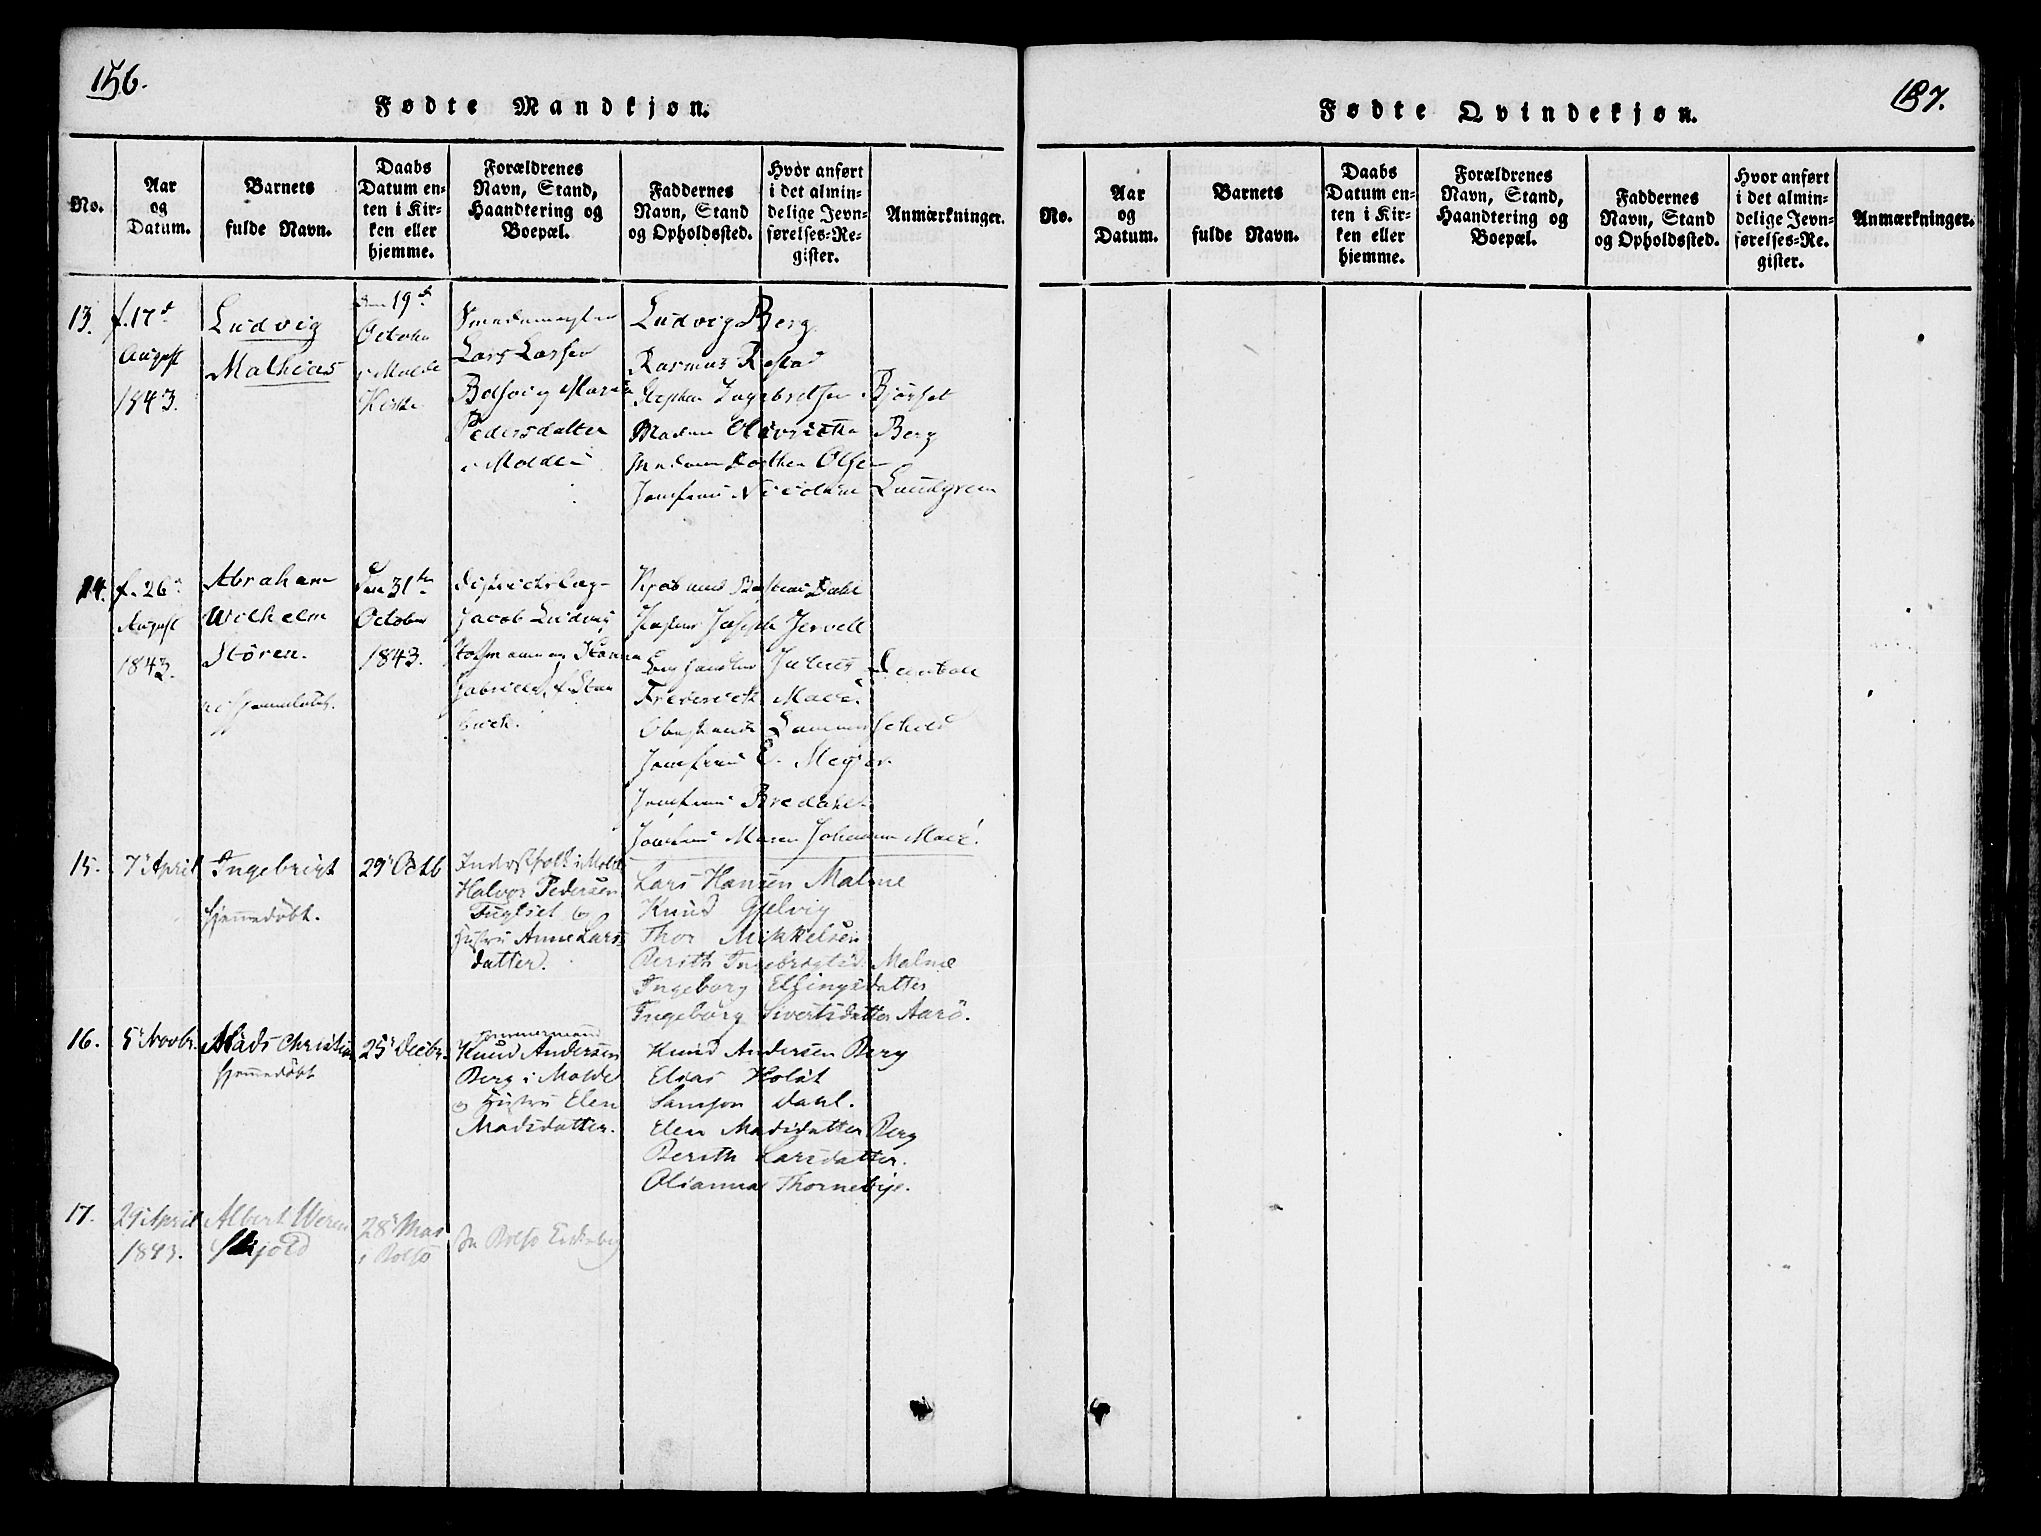 156.
Fødte Mandkjøn.
No.
Aar
og
Datum.
Barnets
fulde Navn.
Daabs
Datum en-
ten i Kir-
ken eller
hjemme.
Forældrenes
Navn, Stand,
Haandtering og
Boepæl.
Faddernes
Navn, Stand
og Opholdssted.
Hvor anført
i det almin-
delige Jevn-
førelses-Re-
gister.
Anmærkninger.
13.
f. 17d
August
1843.
Ludvig
Mathias
den 19d
October
i Molde
Kirke
Lars Larsen
Pedersdatter
i Molde
Ludvig Berg
Rasmus
Stephen Ingebretsen Bjørset
Madame Berg
Madame Olsen
Jomfrue Nicoline Lundgren
14.
f. 26
August
1843.
Abraham
Wilhelm
Støren.
Den 31te
October
1843.
Jacob Ludvig
Kjøbmand Dahl
Joseph Jervell
Julius
Frederick Macé.
Jomfrue E. Meyer.
Jomfrue Bredahl.
Jomfrue Maren Johanna Macé.
15.
7 April
Ingebrigt
hjemmedøbt.
29 Octb
i Molde
Halvor Pedersen
Fuglset og
Hustru Anne Lars-
datter.
Lars Hansen Malme
Knud Gjelvig
Thor Mikkelsen
Berith Ingebrigtsd. Malme
Ingeborg Ellingsdatter
Ingeborg Sivertsdatter Aarö.
16.
5 Novbr.
Mads Christian
hjemmedøbt
25 Decbr.
Tømmermand
Knud Andersen
Berg i Molde
og Hustru Elen
Madsdatter.
Knud Andersen Berg
Elias Holst
Samson Dahl.
Elen Madsdatter Berg
Berith Larsdatter.
Olianna Thornebye.
17.
29 April
1843.
Albert Weren
Skjold
28 Mai
i Bolsö
Se Bolsö
187.
Fødte Qvindekjøn.
No.
Aar
og
Datum.
Barnets
fulde Navn.
Daabs
Datum en-
ten i Kir-
ken eller
hjemme.
Forældrenes
Navn, Stand,
Haandtering og
Boepæl.
Faddernes
Navn, Stand
og Opholdssted.
Hvor anført
i det almin-
delige Jevn-
førelses-Re.
gister.
Anmærkninger.